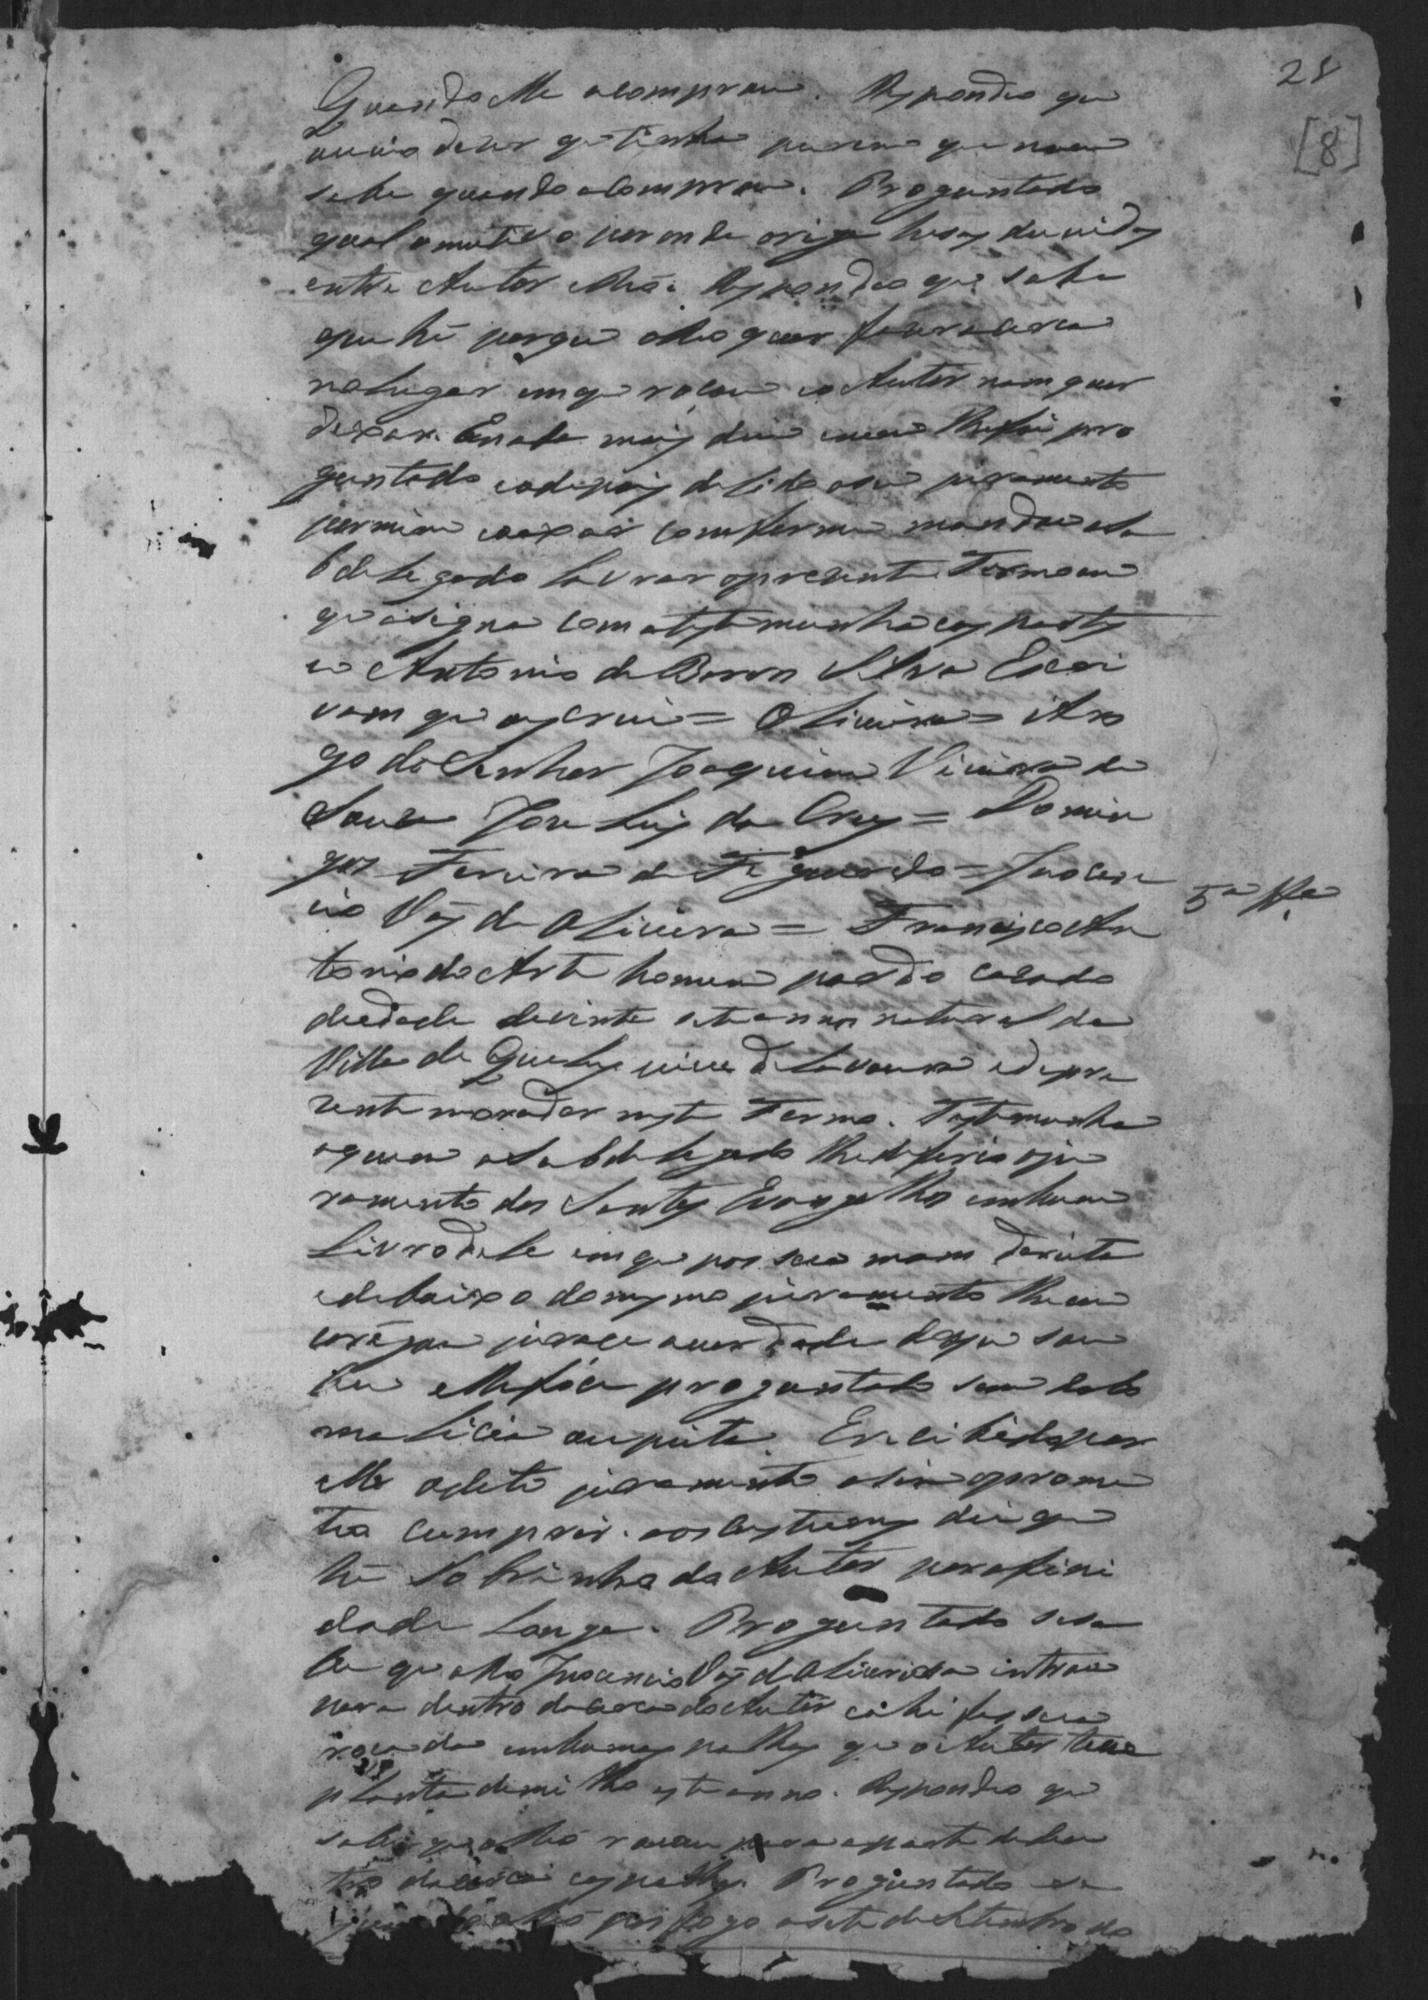 28
[8]
Quando elle a comprou. Respondeo que
ouvio dizer que tinha porem que nam
sabe quando a comprou. Proguntado
qual o motivo por onde origa hesas duvidas
entre Autor e Reo. Respondeo que sabe
que hé porque o Reo quer fazer a cerca
no lugar em que rosou e o Autor nam quer
deixar. E nada mais dice nem lhe foi pro
guntado e depois de lido o seu juramento
por mim o axar comforme mandou o Su
bdelegado lavrar o prezente Termo em
que asigna com a testemunha e as partes
eu Antonio de Barros Silva Escri
vam que escrevi = Oliveira = A ro
go do Senhor Joaquim Vieira de
Souza Joze Luis da Cruz = Domin
gos Ferreira de Figueredo = Inocen
cio Vas de Oliveira = Francisco An
5ª Ttª
tonio do Arte homem pardo cazado
de idade de vinte sete annos natural da
Villa de Queluz vive de lavoura e de pre
zente morador neste Termo. Testemunha
a quem o Subdelegado lhe deferio o ju
ramento dos Santos Evangelhos em hum
Livro delle em que pos sua mam direita
e debaixo do mesmo juramento lhe en
caregou jurace a verdade do que sou
bece e lhe foce proguntado sem dolo
malicia ou peita. E recibido por
elle o dito juramento asim o prome
teo cumprir. aos custumes dice que
hé Sobrinho do Autor por afini
dade Longe. Proguntado se sa
be que o Reo Inocencio Vas de Oliveira introu
para dentro da cerca do Autor e ahi fes sua
rosada em humas palhas que o Autor teve
planta de milho este anno. Respondeo que
sabe que o Reo rosou para a parte de den
tro da cerca e as palhas. Proguntado se
o Reo pos fogo a sete de Setembro do